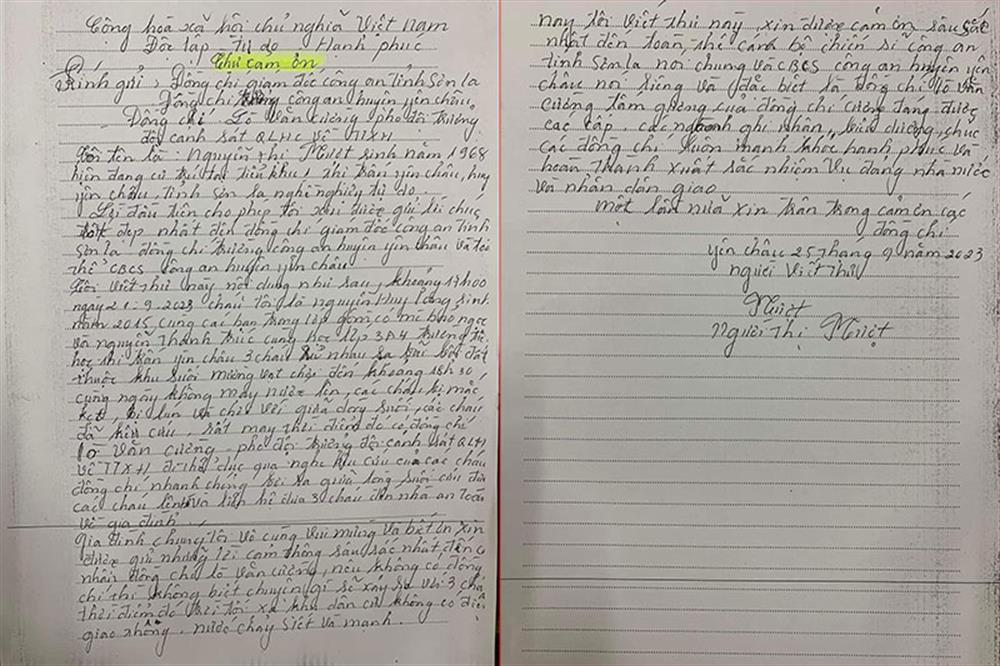 Cộng hoà xã hội chủ nghĩa Việt Nam
Độc lập tự do Hạnh phúc
Thư cảm ơn
Kính gửi : Đồng chí giám đốc công an tỉnh sơn la
Đồng chí trưởng công an huyện yên châu
Đồng chí Lò Văn Cường phó đội trưởng
đội cảnh sát QLHC về TTXH
Tôi tên là : Nguyễn thị Mượt sinh năm 1968
hiện đang cư trú tại tiểu khu 1 thị trấn yên châu, huy
yên châu, tỉnh sơn la nghề nghiệp tự do.
Lời đầu tiên cho phép tôi xin được gửi lời chúc
tốt đẹp nhất đến đồng chí giám đốc công an tỉnh
sơn la đồng chí trưởng công an huyện yên châu và toà
thể CBCS công an huyện yên châu
Tôi viết thư này nội dung như sau, khoảng 17h00
ngày 21.9.2023 cháu tôi là nguyễn Huy Long sinh
năm 2015 cùng các bạn trong lớp gồm có mè bảo ngọc
và nguyễn Thanh Trúc cùng học lớp 3A4 trường tiể
học thị trấn yên châu 3 cháu rủ nhau ra bãi bồi đất
thuộc khu suối mường vạt chơi đến khoảng 18h30
cùng ngày không may nước lên, các cháu bị mắc
kẹt, bị lún và chới với giữa dòng suối, các cháu
đã kêu cứu, rất may thời điểm đó có đồng chí
lò văn cường phó đội trưởng đội cảnh sát QLH
về TTXH đi thể dục qua nghe kêu cứu của các cháu
đồng chí nhanh chóng bơi ra giữa lòng suối cứu đưa
các cháu lên và liên hệ đưa 3 cháu đến nhà an toàn
về gia đình.
Gia đình chúng tôi vô cùng vui mừng và biết ơn xin
được gửi những lời cảm thông sâu sắc nhất đến c
nhân đồng chí lò văn cường, nếu không có đồng
chí thì không biết chuyện gì sẽ xảy ra với 3 chá
thời điểm đó trời tối xa khu dân cư không có điện
giao thông, nước chảy siết và mạnh.
nay tôi viết thư này, xin được cảm ơn sâu sắc
nhất đến toàn thể cán bộ chiến sĩ công an
tỉnh sơn la nói chung và CBCS công an huyện yên
châu nói riêng và đặc biệt là đồng chí lò văn
cường tấm gương của đồng chí cường đáng được
các cấp, các ngành ghi nhận, biểu dương, chúc
các đồng chí luôn mạnh khoẻ hạnh phúc và
hoàn thành xuất sắc nhiệm vụ đảng nhà nước
và nhân dân giao
một lần nữa xin trân trọng cảm ơn các
đồng chí
yên châu 25 tháng 9 năm 2023
người viết thư
Mượt
Nguyễn Thị Mượt